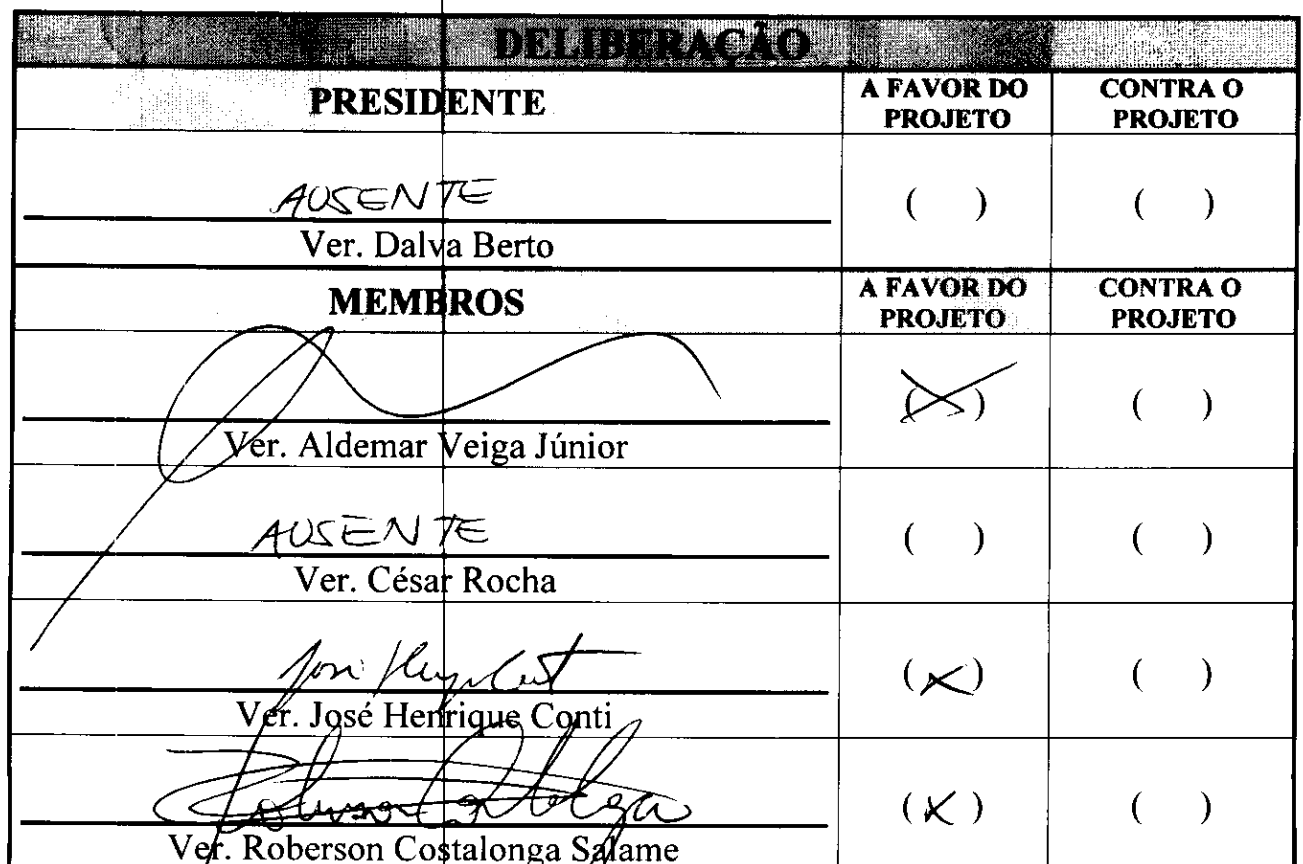 DELIBERAÇÃO
PRESIDENTE
A FAVOR DO
PROJETO
CONTRA O
PROJETO
AUSENTE
( )
( )
Ver. Dalva Berto
MEMBROS
A FAVOR DO
PROJETO
CONTRA O
PROJETO
(X)
( )
Ver. Aldemar Veiga Júnior
AUSENTE
( )
( )
Ver. César Rocha
(X)
( )
Ver. José Henrique Conti
(X)
( )
Ver. Roberson Costalonga Salame